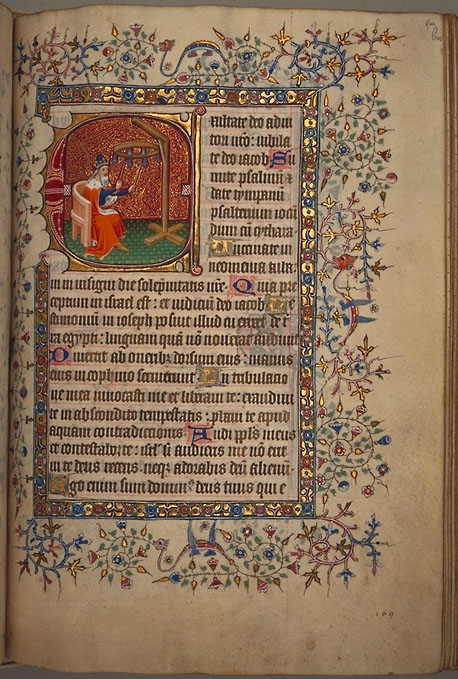 Exultate deo adiu
tori nro: iubila
te deo iacob Su
mite psalmũ &
date tympanũ
psalterium iocũ
dum cũ cythara
Bucinate in
neomenia tuba:
in insigni die solepnitatis vre. Quia pre
ceptum in israel est: et iudiciũ deo iacob. Te
stimoniũ in ioseph posuit illud cũ exiret de t
ra egypti: linguam quã nõ noverat audiuit
Diuertit ab onerib dorsum eius: manus
eius in cophino seruierunt In tribulacio
ne inuocasti me et liberaui te: exaudiui
te in abscondito tempestatis: probaui te apud
aquam contradictionis Audi ppls meus
et contestabor te: isrl si audieris me nõ erit
in te deus recens: neq adorabis deũ alienũ
Ego enim sum domin deus tuus qui e
169